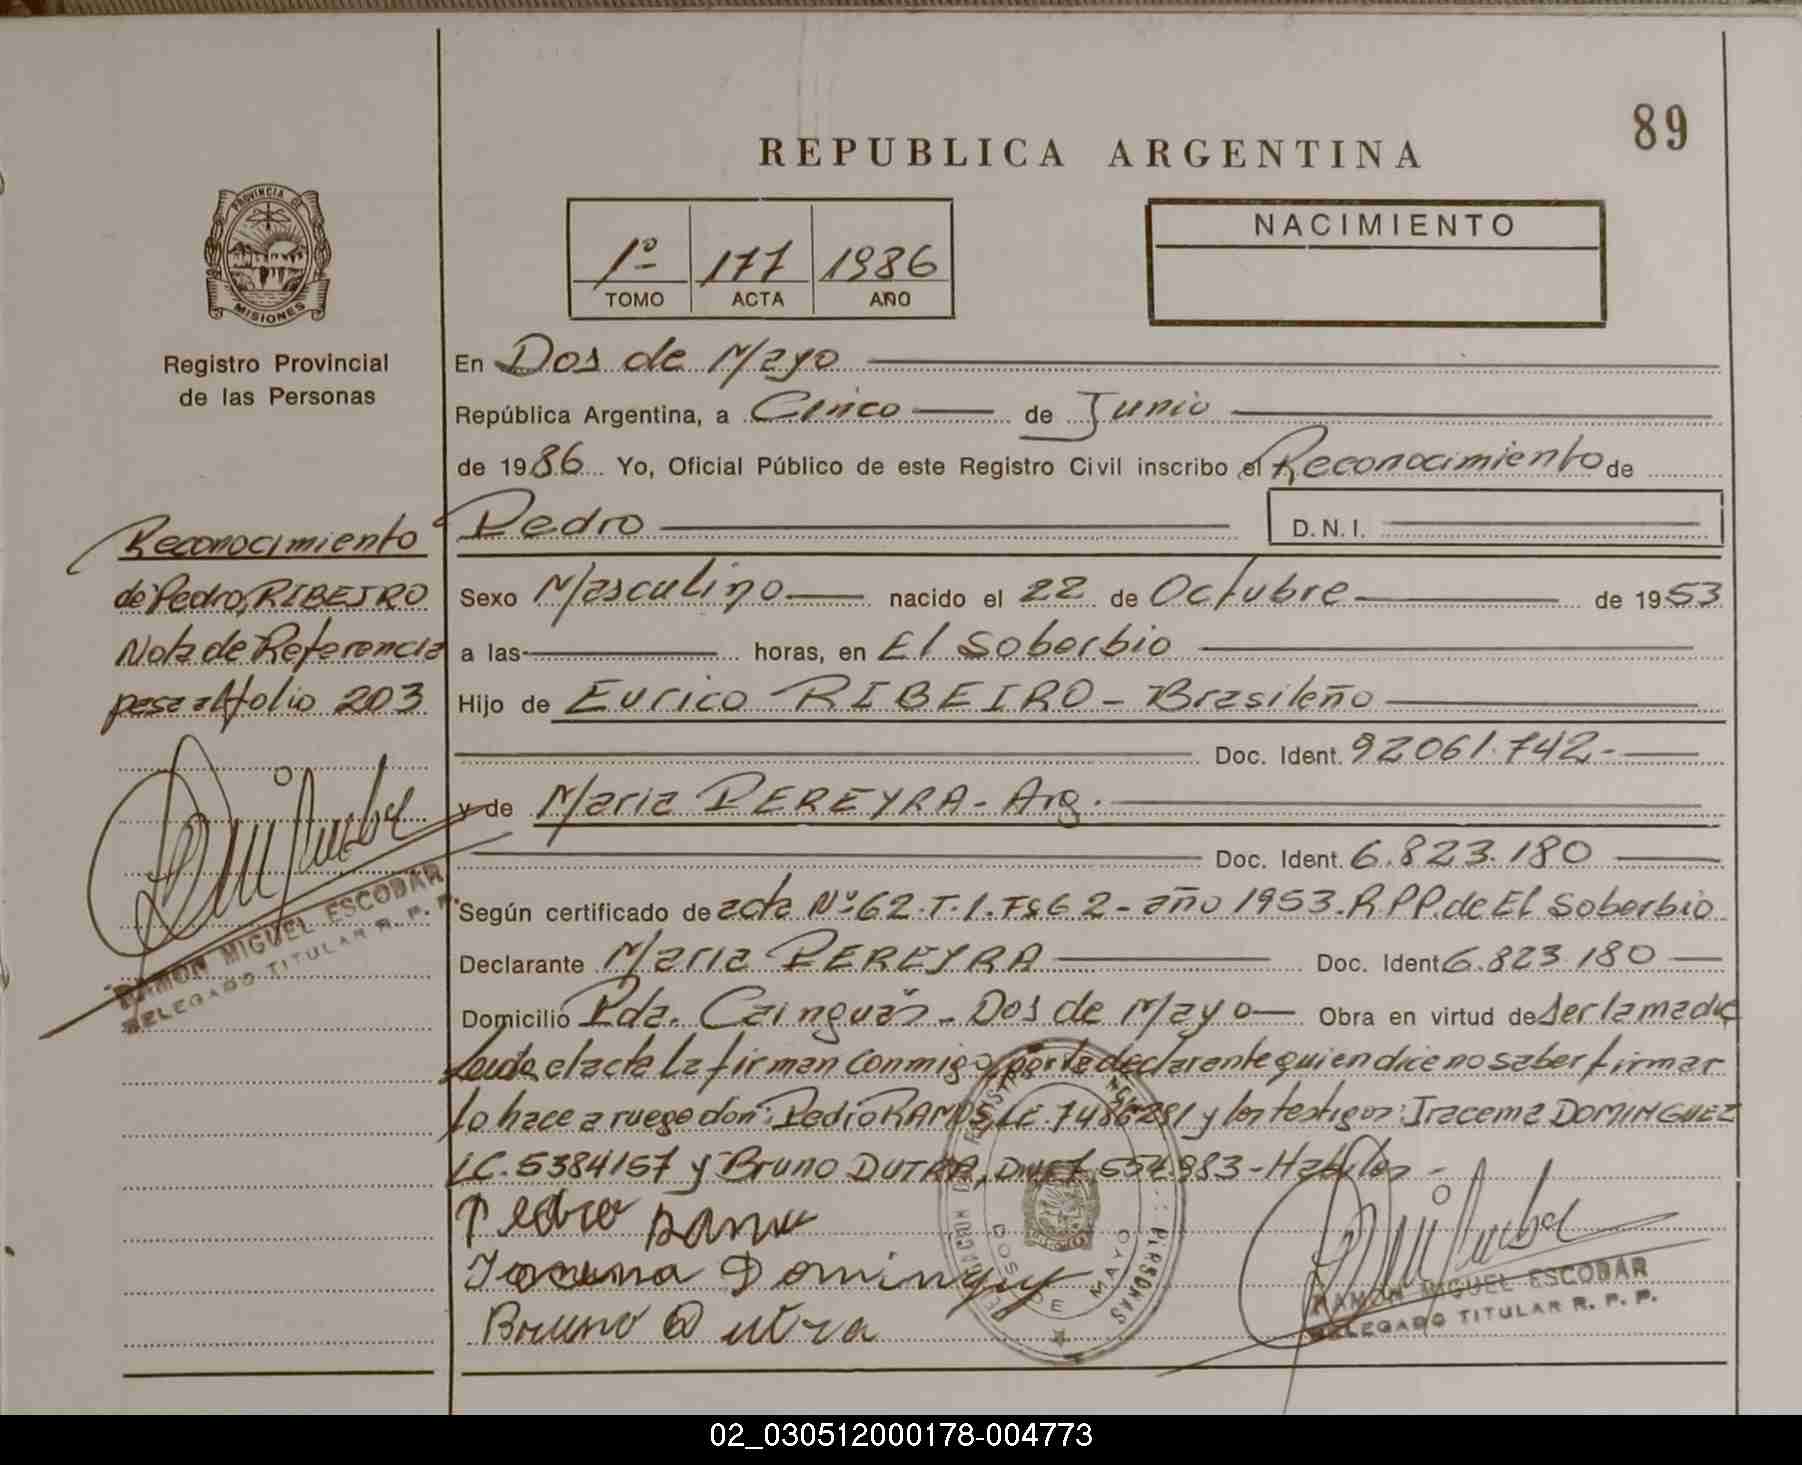 89
REPUBLICA ARGENTINA
1º 177 1986
TOMO ACTA AÑO
NACIMIENTO
PROVINCIA DE
MISIONES
Registro Provincial
de las Personas
En Dos de Mayo
República Argentina, a Cinco de Junio
de 1986 Yo, Oficial Público de este Registro Civil inscribo el Reconocimiento de
Pedro D.N.I.
Sexo Masculino nacido el 22 de Octubre de 1953
a las horas, en El Soberbio
Hijo de Eurico RIBEIRO - Brasileño
Doc. Ident. 92061.742-
y de Maria PEREYRA - Arg.
Doc. Ident. 6.823.180
Según certificado de acta Nº 62.T.1.Fs 62 - año 1953. R.P.P. de El Soberbio
Declarante Maria PEREYRA Doc. Ident 6.823.180
Domicilio Pda. Cainguás - Dos de Mayo Obra en virtud de ser la madre
Leida el acta la firman conmigo, por la declarante quien dice no saber firmar
lo hace a ruego don: Pedro RAMOS, LE. 7486291 y los testigos: Iracema DOMINGUEZ
LC. 5384157 y Bruno DUTRA, 554.983 - Habiles -
Pedro Ramos
Iracema Dominguez
Bruno Dutra
RAMON MIGUEL ESCOBAR
DELEGADO TITULAR R. P. P.
PERSONAS
DOS DE MAYO
Reconocimiento
de Pedro, RIBEIRO
Nota de Referencia
pasa al folio 203
RAMON MIGUEL ESCOBAR
DELEGADO TITULAR R. P. P.
02_030512000178-004773